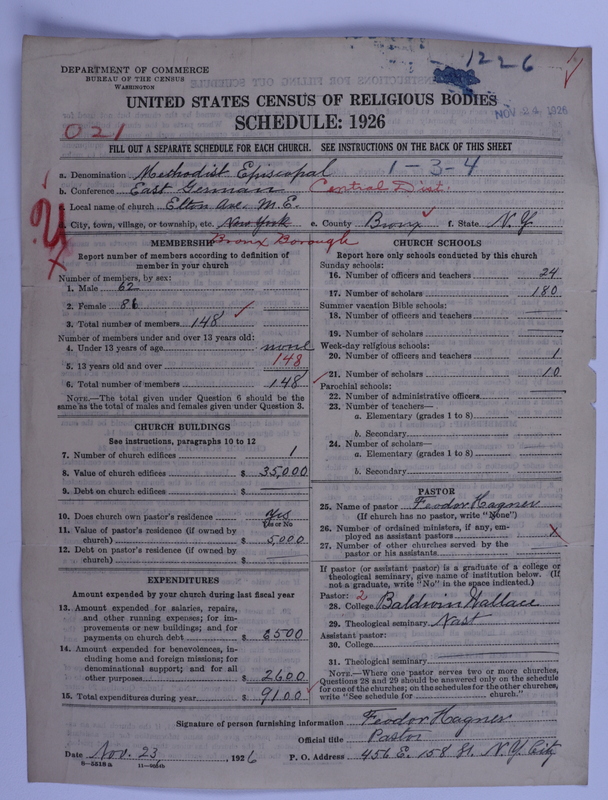 1226
DEPARTMENT OF COMMERCE
BUREAU OF THE CENSUS
WASHINGTON
UNITED STATES CENSUS OF RELIGIOUS BODIES
NOV 24 1926
SCHEDULE: 1926
021
FILL OUT A SEPARATE SCHEDULE FOR EACH CHURCH. SEE INSTRUCTIONS ON THE BACK OF THIS SHEET
a. Denomination Methodist Episcopal 1-3-4
b. Conference East German Central Dist.
c. Local name of church Elton Ave. M.E.
d. City, town, village, or township, etc. New York e. County Bronx f. State N.Y.
Bronx Borough
MEMBERSHIP
Report number of members according to definition of
member in your church
Number of members, by sex:
1. Male 62
2. Female 86
3. Total number of members 148
Number of members under and over 13 years old:
4. Under 13 years of age none
5. 13 years old and over 148
6. Total number of members 148
NOTE.—The total given under Question 6 should be the
same as the total of males and females given under Question 3.
CHURCH BUILDINGS
See instructions, paragraphs 10 to 12
7. Number of church edifices 1
8. Value of church edifices $ 35,000
9. Debt on church edifices $
10. Does church own pastor's residence Yes
Yes or No
11. Value of pastor's residence (if owned by
church) $ 5,000
12. Debt on pastor's residence (if owned by
church) $
EXPENDITURES
Amount expended by your church during last fiscal year
13. Amount expended for salaries, repairs,
and other running expenses; for im-
provements or new buildings; and for
payments on church debt $ 6500
14. Amount expended for benevolences, in-
cluding home and foreign missions; for
denominational support; and for all
other purposes $ 2600
15. Total expenditures during year $ 9100
CHURCH SCHOOLS
Report here only schools conducted by this church
Sunday schools:
16. Number of officers and teachers 24
17. Number of scholars 180
Summer vacation Bible schools:
18. Number of officers and teachers
19. Number of scholars
Week-day religious schools:
20. Number of officers and teachers 1
21. Number of scholars 10
Parochial schools:
22. Number of administrative officers
23. Number of teachers—
a. Elementary (grades 1 to 8)
b. Secondary
24. Number of scholars—
a. Elementary (grades 1 to 8)
b. Secondary
PASTOR
25. Name of pastor Feodor Hagner
(If church has no pastor, write "None")
26. Number of ordained ministers, if any, em-
ployed as assistant pastors x
27. Number of other churches served by the
pastor or his assistants
If pastor (or assistant pastor) is a graduate of a college or
theological seminary, give name of institution below. (If
not a graduate, write "No" in the space indicated.)
Pastor: 2
28. College Baldwin Wallace
29. Theological seminary Nast
Assistant pastor:
30. College
31. Theological seminary
NOTE.—Where one pastor serves two or more churches,
Questions 28 and 29 should be answered only on the schedule
for one of the churches; on the schedules for the other churches,
write "See schedule for church."
Signature of person furnishing information Feodor Hagner
Official title Pastor
Date Nov. 23, 1926 P. O. Address 456 E. 158 St. N.Y. City
8-5518 a